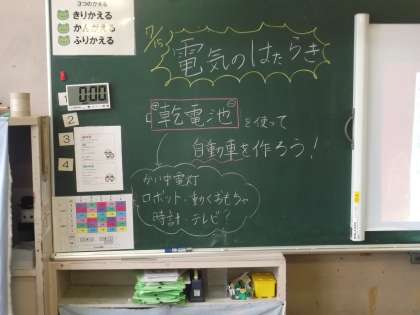 3つのかえる
きりかえる
かんがえる
ふりかえる
7/15
電気のはたらき
0:00
1
2
3
4
乾電池を使って
自動車を作ろう!
かい中電灯
ロボット・動くおもちゃ
時計・テレビ?